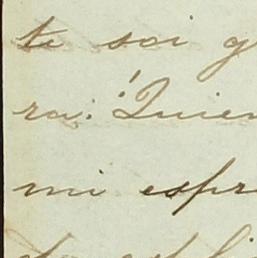 te soi g
ra: ¡Quien
mi espr